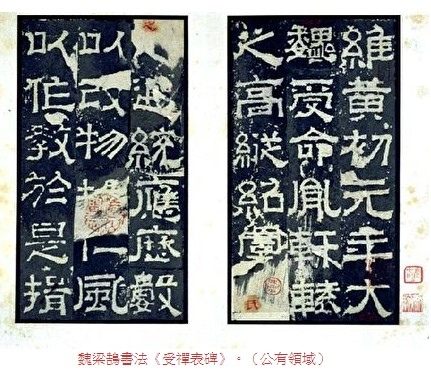 維黃初元年大
魏受命胤軒轅
之高縱紹虞
遐統應歷數
以改物揚仁風
以作教於是揖
魏梁鵠書法《受禪表碑》。（公有領域）